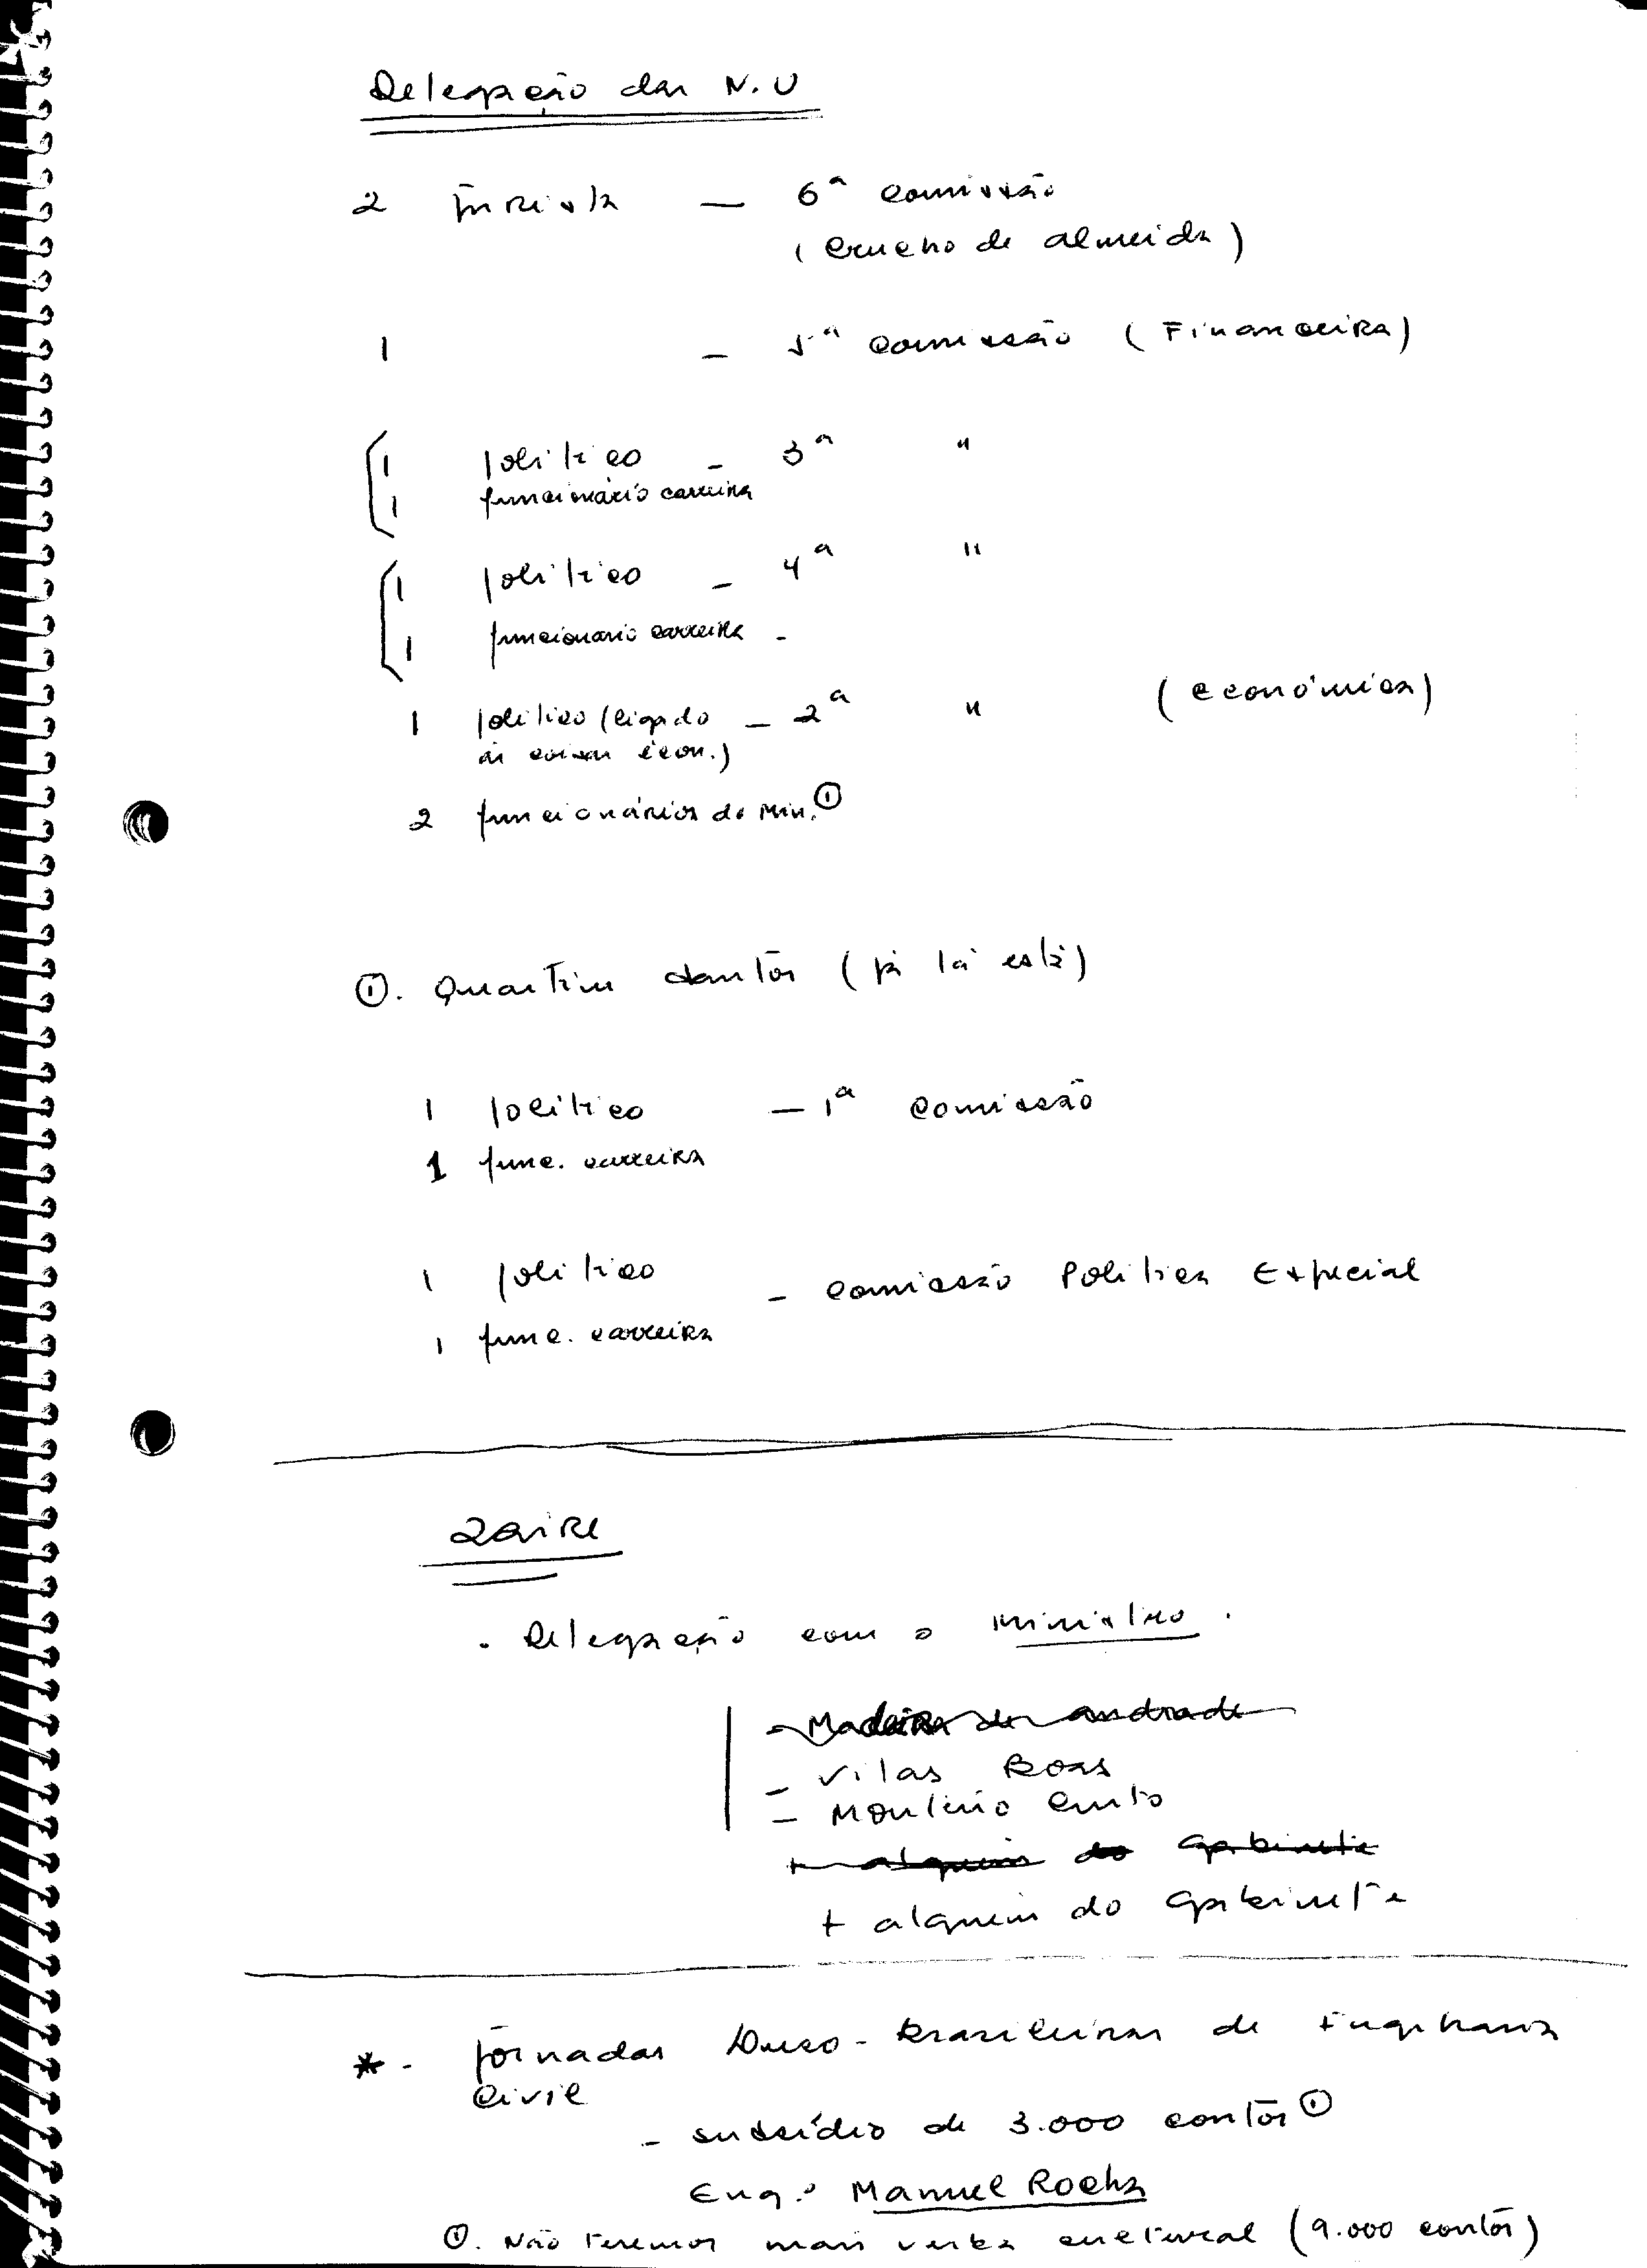 Delegação das N.U
2 jurista — 6ª comissão
(Crueho de Almeida)
1 — 5ª comissão (Financeira)
1 político — 3ª "
1 funcionário carreira
1 político — 4ª "
1 funcionario carreira -
1 político (ligado — 2ª " (económica)
às coisas écon.)
2 funcionários do Min. ①
①. Quartin Santos (já lá está)
1 político — 1ª comissão
1 func. carreira
1 político
- Comissão Política Especial
1 func. carreira
Zaire
- Delegação com o Ministro.
- Madeira de Andrade
- Vilas Boas
- Monteiro
+ alguém do Gabinete
+ alguém do Gabinete
* - Jornadas Luso-Brasileiras de Engenharia
Civil
- subsídio de 3.000 contos ①
Eng.º Manuel Rocha
①. Não teremos mais verba cultural (9.000 contos)